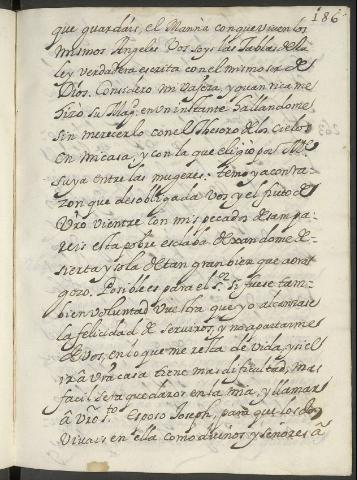 186
que guardáis, el Manna con que viven los
mismos Angeles. Vos soys las tablas de la
ley verdadera escrita con el mismo ser de
Dios. Considero mi vajeza, y quan rica me
hizo su Magd. en un instante hallandome
sin merecerlo con el thesoro de los Cielos
en mi casa, y con la que eligio por Me.
suya entre las mugeres: temo ya con ra-
zon que desobligada Vos y el fruto de
Vro vientre con mis pecados desampa-
reis esta pobre esclaba dexandome de-
sierta y sola de tan gran bien que aora
gozo. Posible es para el Sr. si fuese tam-
bien voluntad vuestra que yo alcanzase
la felicidad de serviros, y no apartarme
de vos, en lo que me resta de vida, y si el
ir à vra casa tiene mas dificultad, mas
facil será quedaros en la mia, y llamar
à vro sto. Esposo Joseph, para que los dos
vivais en ella como dueños y señores à